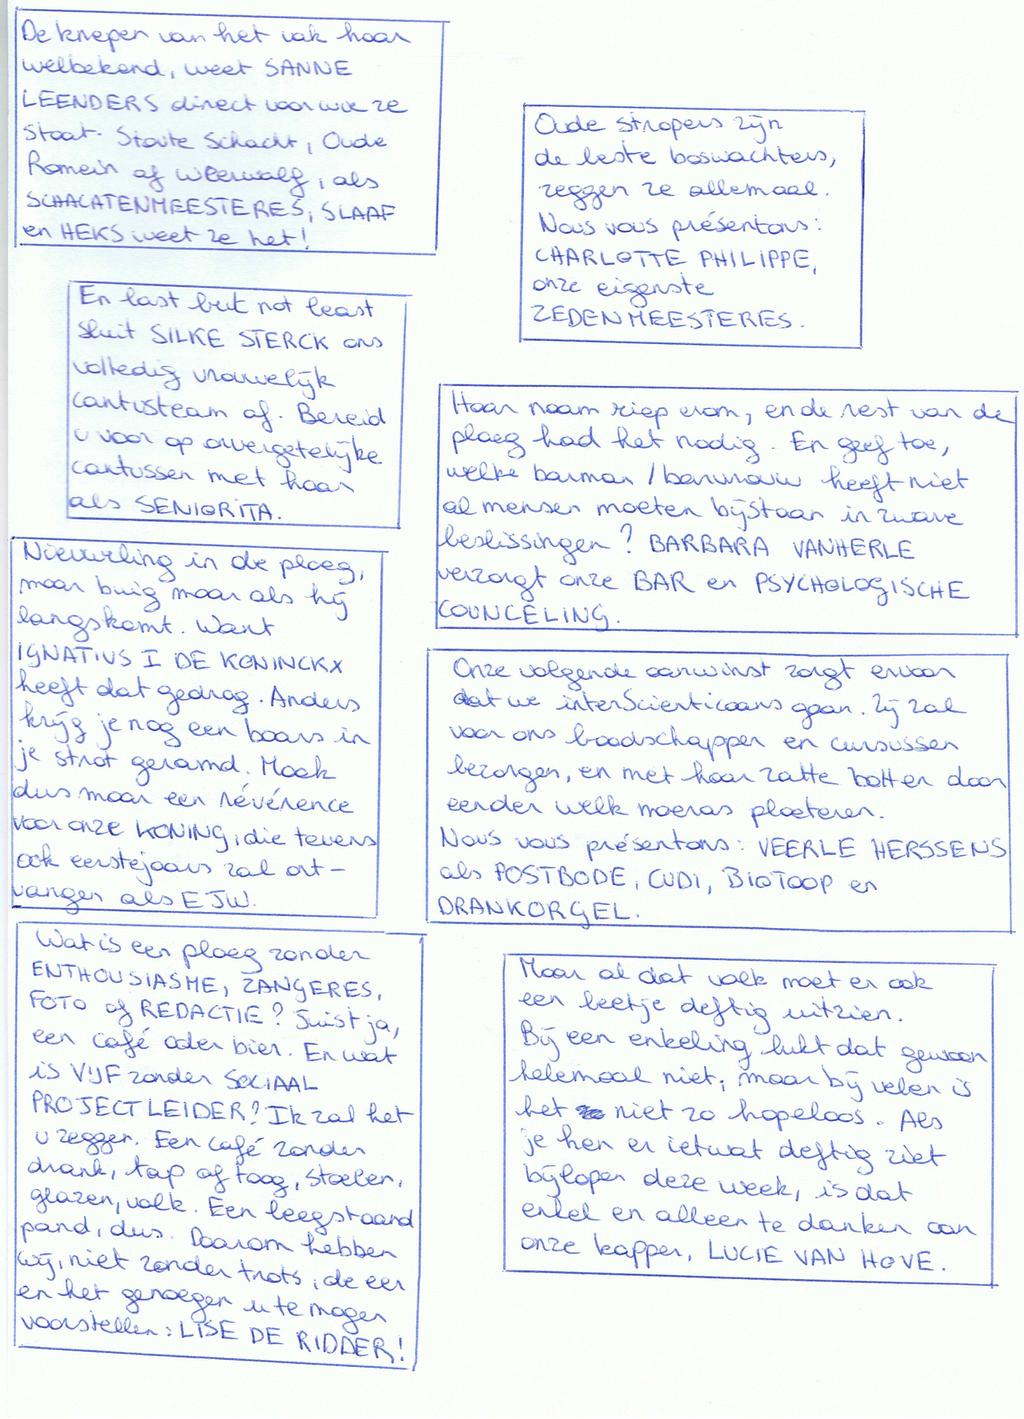 De knepen van het vak haar
welbekend, weet SANNE
LEENDERS direct voor wie ze
staat. Stoute Schacht, Oude
Romein of weerwolf, als
SCHACHTENMEESTERES, SLAAF
en HEKS weet ze het!
Oude stropers zijn
de beste boswachters,
zeggen ze allemaal.
Nous vous présentons:
CHARLOTTE PHILIPPE,
onze eigenste
ZEDENMEESTERES.
En last but not least
sluit SILKE STERCK ons
volledig vrouwelijk
cantusteam af. Bereid
u voor op onvergetelijke
cantussen met haar
als SENIORITA.
Haar naam riep erom, en de rest van de
ploeg had het nodig. En geef toe,
welke barman / barvrouw heeft niet
al mensen moeten bijstaan in zware
beslissingen? BARBARA VANHERLE
verzorgt onze BAR en PSYCHOLOGISCHE
COUNCELING.
Nieuweling in de ploeg,
maar buig maar als hij
langskomt. Want
IGNATIUS I DE KONINCKX
heeft dat gedrag. Anders
krijg je nog een baars in
je strot geramd. Maak
dus maar een révérence
voor onze KONING, die tevens
ook eerstejaars zal ont-
vangen als EJW.
Onze volgende aanwinst zorgt ervoor
dat we interScienticaans gaan. Zij zal
voor ons boodschappen en cursussen
bezorgen, en met haar zatte botten door
eender welk moeras ploeteren.
Nous vous présentons: VEERLE HERSSENS
als POSTBODE, CUDI, BIOTOOP en
DRANKORGEL.
Wat is een ploeg zonder
ENTHOUSIASME, ZANGERES,
FOTO of REDACTIE? Juist ja,
een café zonder bier. En wat
is VIJF zonder SOCIAAL
PROJECTLEIDER? Ik zal het
u zeggen. Een café zonder
drank, tap of toog, stoelen,
glazen, volk. Een leegstaand
pand, dus. Daarom hebben
wij, niet zonder trots, de eer
en het genoegen u te mogen
voorstellen: LISE DE RIDDER!
Maar al dat volk moet er ook
een beetje deftig uitzien.
Bij een enkeling lukt dat gewoon
helemaal niet, maar bij velen is
het niet zo hopeloos. Als
je hen er ietwat deftig ziet
bijlopen deze week, is dat
enkel en alleen te danken aan
onze kapper, LUCIE VAN HOVE.